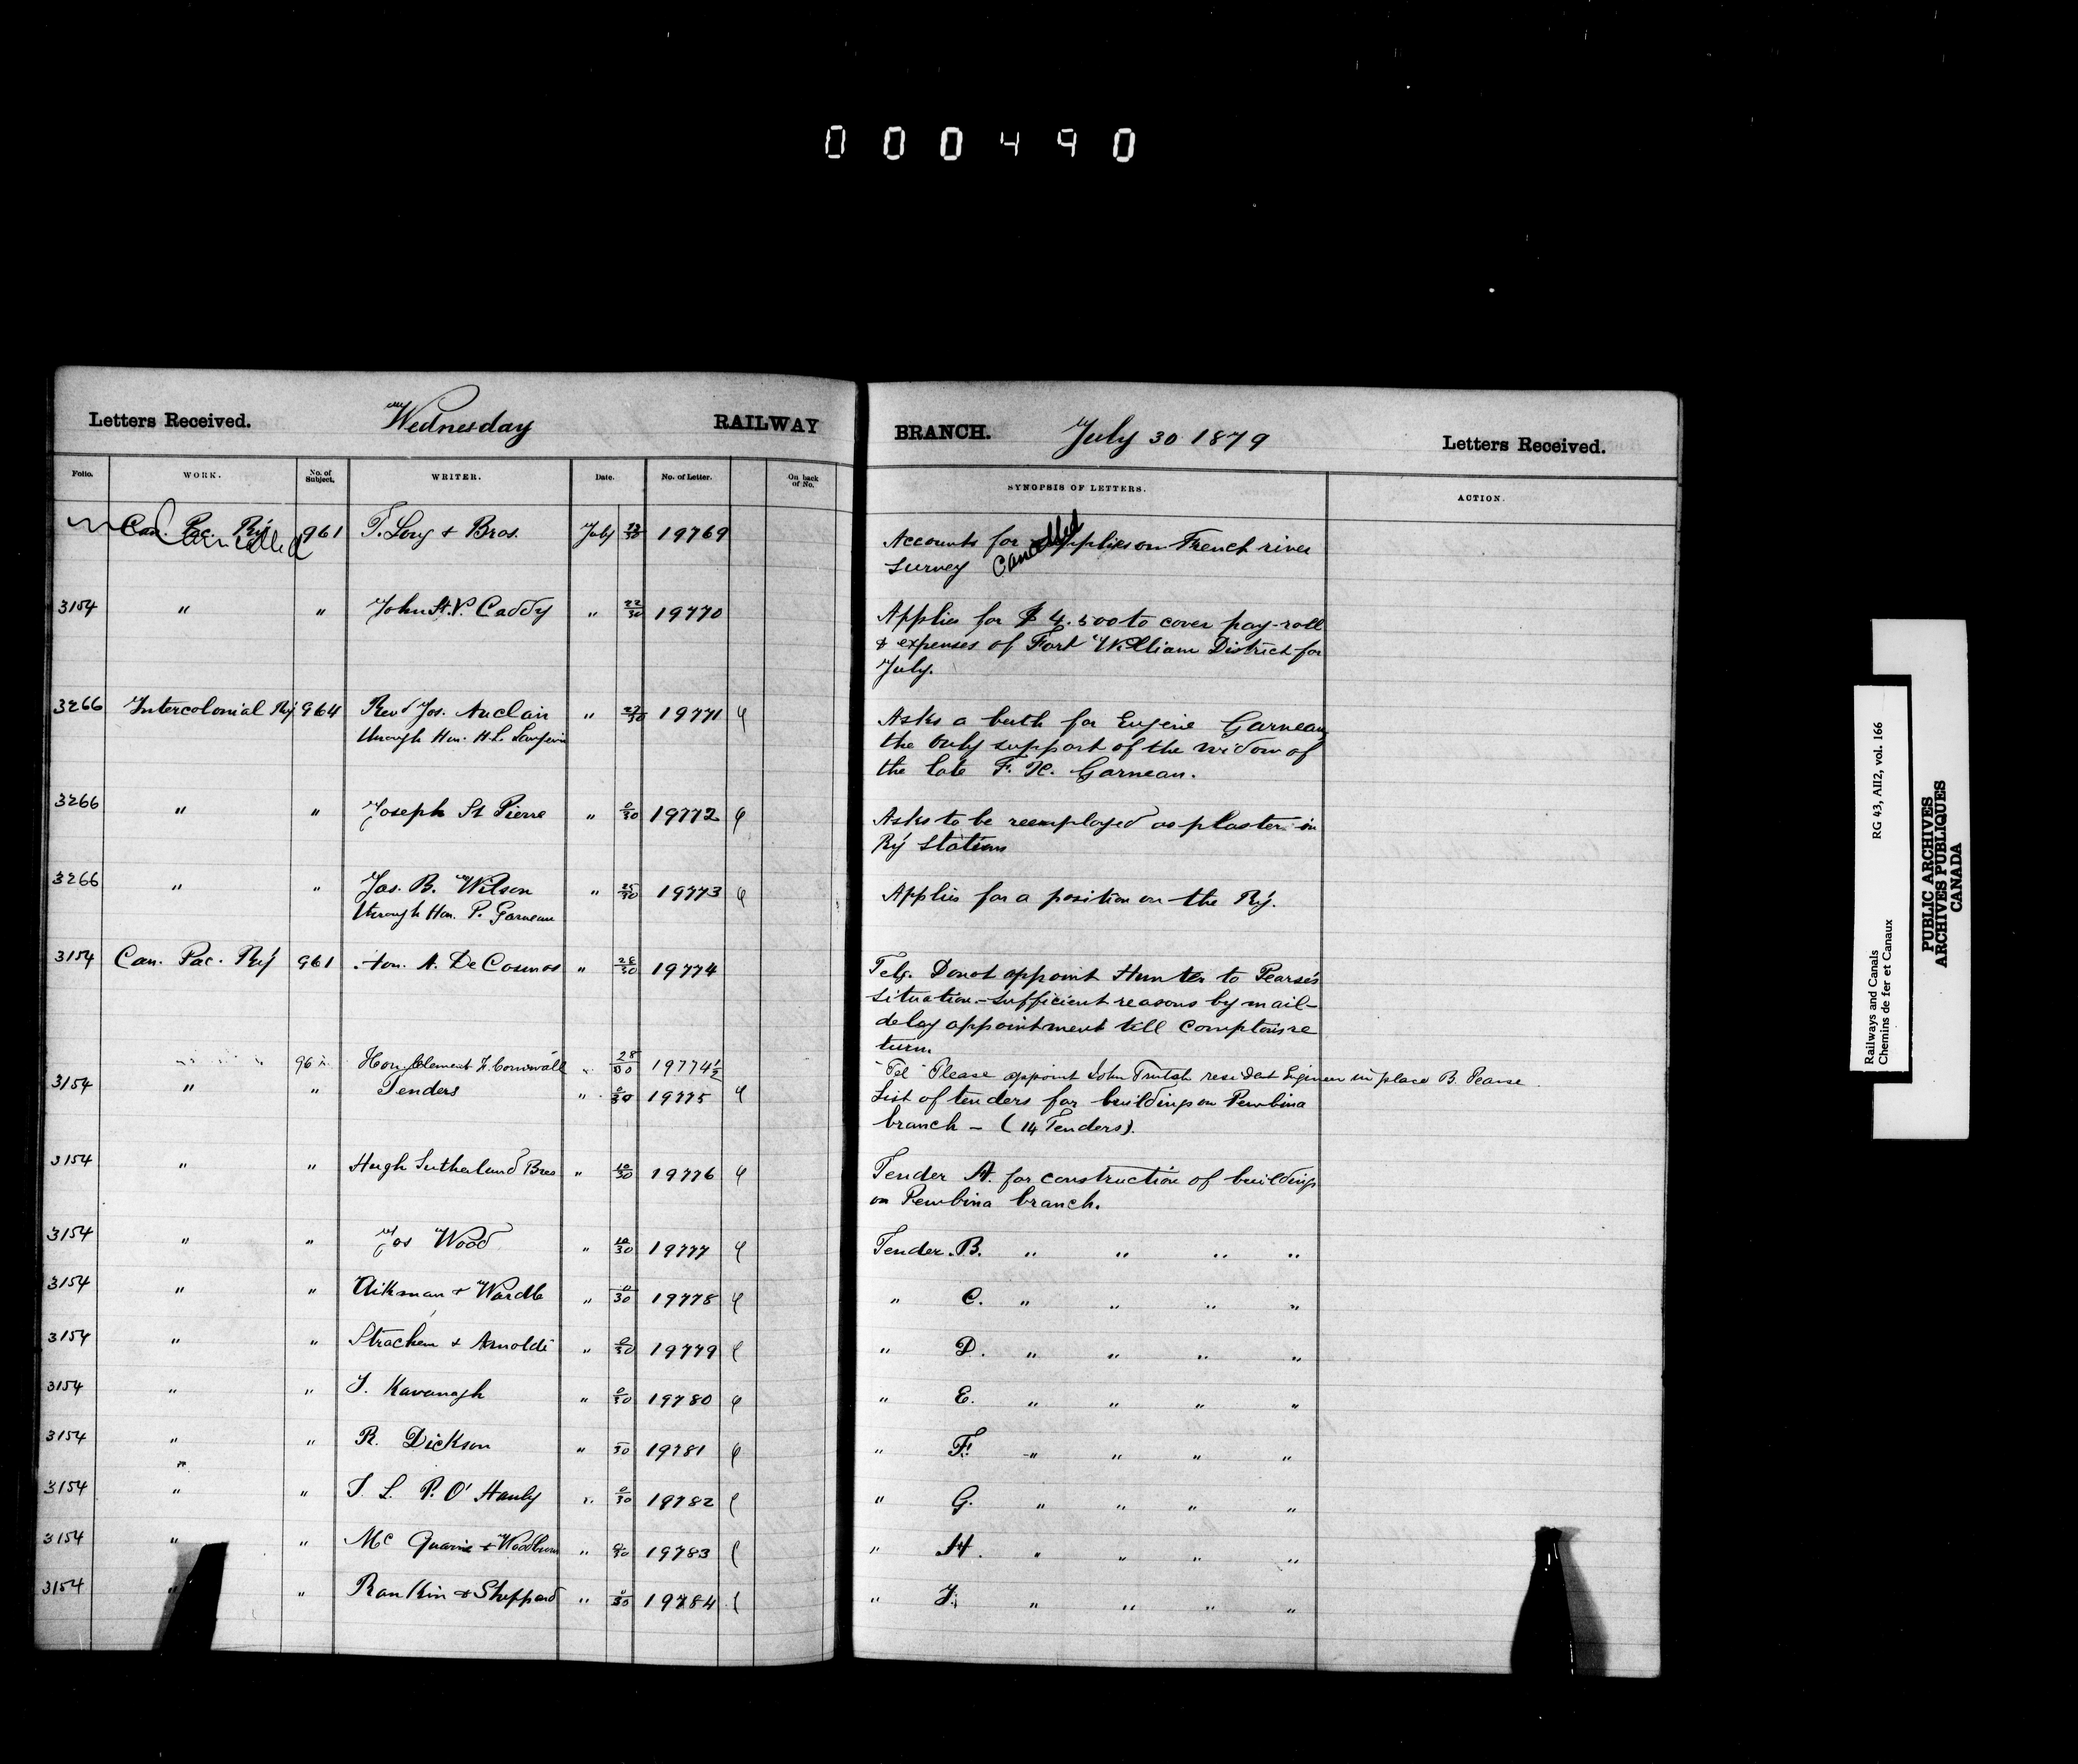 000490
Letters Received. Wednesday RAILWAY
Folio. WORK. No. of Subject. WRITER. Date. No. of Letter. On back of No.
Can. Pac. Ry 961 T. Long + Bros. July 30 19769
Cancelled
3154 " " John St. V. Caddy " 22/30 19770
3266 Intercolonial Ry 964 Revd Jos. Auclair " 30 19771
through Hon. H. L. Langevin
3266 " " Joseph St Pierre " 0/30 19772
3266 " " Jas. B. Wilson " 25/30 19773
through Hon. P. Garneau
3154 Can. Pac. Ry 961 Hon. A. De Cosmos " 28/30 19774
96 Hon Clement F. Cornwall " 28/30 19774½
3154 " " Tenders " 0/30 19775
3154 " " Hugh Sutherland Bros " 30 19776
3154 " " Jos Wood " 30 19777
3154 " " Aikman + Wardle " 30 19778
3154 " " Strachan + Arnoldi " 0/30 19779
3154 " " J. Kavanagh " 0/30 19780
3154 " " R. Dickson " 30 19781
"
3154 " " J. L. P. O'Hanly " 0/30 19782
3154 " " Mc Quarrie + Woodburn " 30 19783
3154 " " Rankin + Sheppard " 0/30 19784
BRANCH. July 30 1879 Letters Received.
SYNOPSIS OF LETTERS. ACTION.
Accounts for supplies on French river
survey Cancelled
Applies for $4.500 to cover pay-roll
& expenses of Fort William District for
July.
Asks a berth for Eugène Garneau,
the only support of the widow of
the late F. X. Garneau.
Asks to be reemployed as plaster in
Ry Stations
Applies for a position on the Ry.
Telg. Donot appoint Hunter to Pearse's
situation.-sufficient reasons by mail-
delay appointment till Comptons re
turn.
"Tel" Please appoint John Trutch resident Engineer in place B. Pearse.
List of tenders for buildings on Pembina
branch - (14 Tenders).
Tender A. for construction of buildings
on Pembina branch.
Tender. B. " " " "
" C. " " " "
" D. " " " "
" E. " " " "
" F. " " " "
" G. " " " "
" H. " " " "
" J. " " " "
Railways and Canals RG 43, AII2, vol. 166
Chemins de fer et Canaux
PUBLIC ARCHIVES
ARCHIVES PUBLIQUES
CANADA